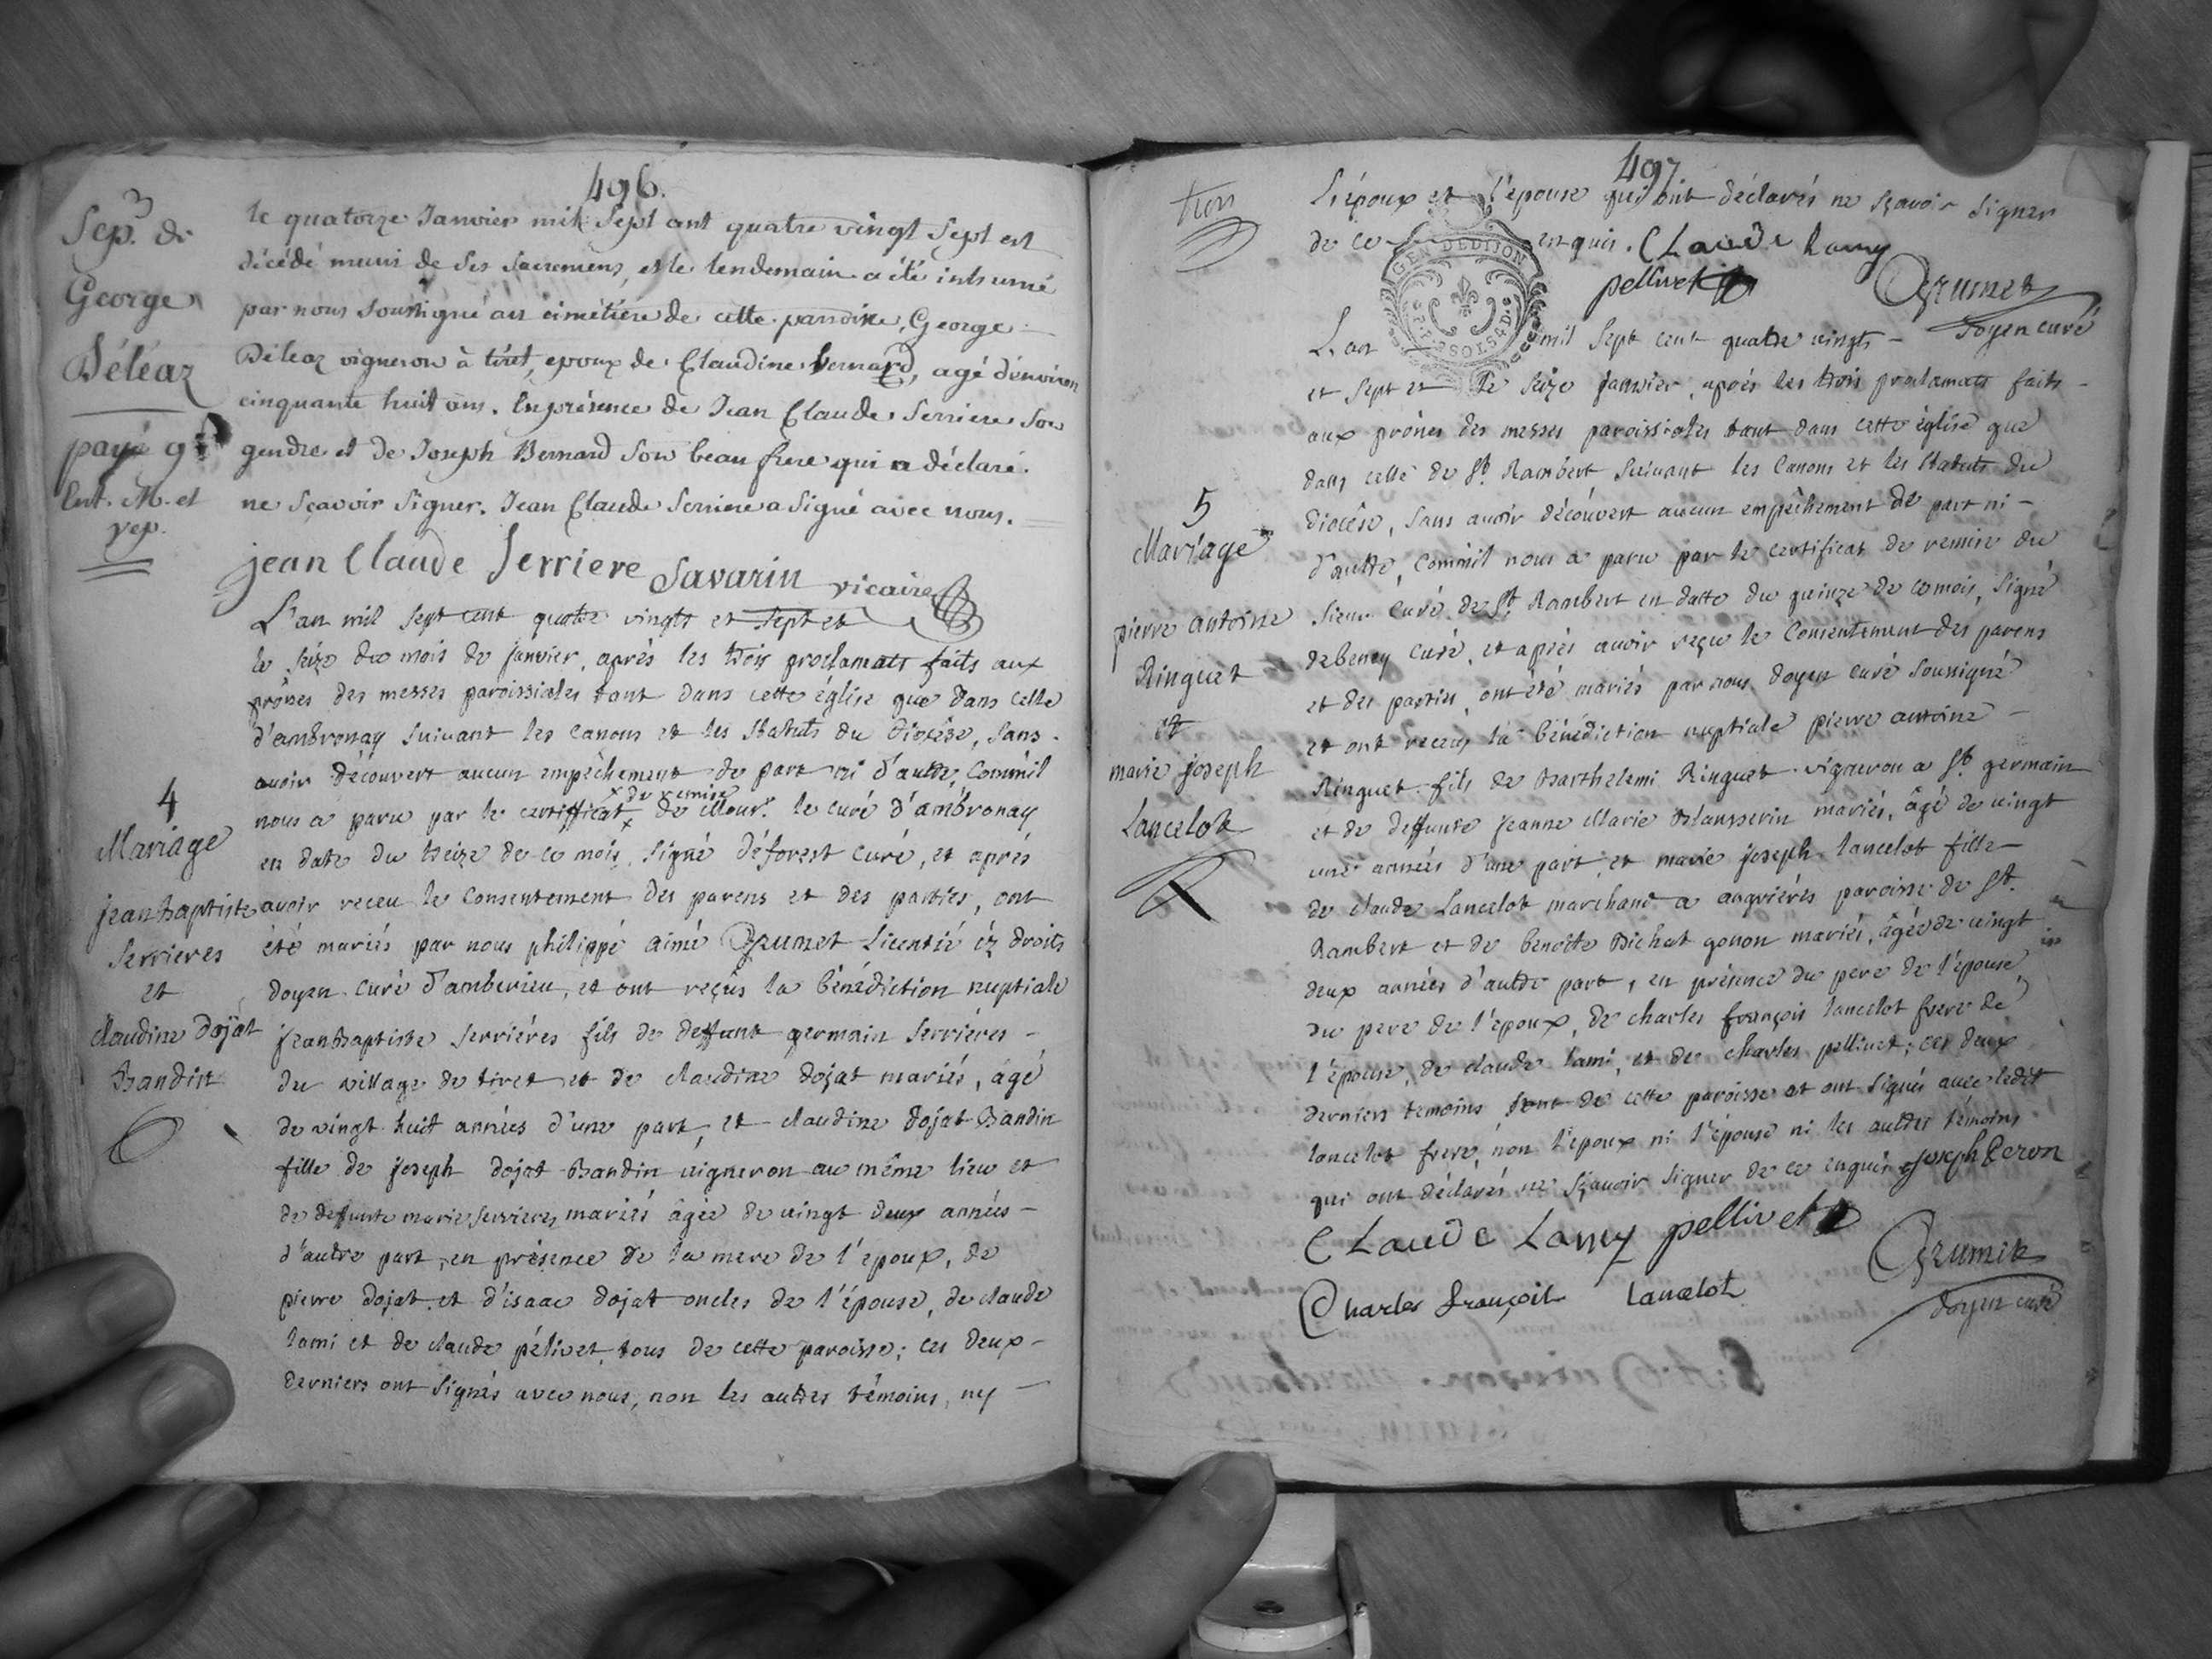 496.
3
Sep.re de
George
Déléaz
payé 9#
Ent. M. et
vep.
le quatorze Janvier mil Sept cent quatre vingt Sept est
décédé muni de ses sacremens, et le lendemain a été inhumé
par nous soussigné au cimétiére de cette paroisse, George
Déléaz vigneron à tiret, epoux de Claudine bernard, agé d'environ
cinquante huit ans. En présence de Jean Claude Serriere Son
gendre et de Joseph Bernard Son beau frere qui a déclaré
ne sçavoir signer. Jean Claude Serriere a Signé avec nous.
jean Claude Serriere Savarin vicaire
4
Mariage
jean baptiste
Serrieres
et
claudine dojat
Bandin
L'an mil sept cent quatre vingts et sept et
le seize du mois de janvier, après les trois proclamats faits aux
prônes des messes paroissiales tant dans cette église que dans celle
d'ambronay suivant les canons et les statuts du diocèse, sans
avoir découvert aucun empêchement de part ni d'autre, comm'il
x de remise
nous a paru par le certifficat x de Monsr. le curé d'ambronay
en date du treize de ce mois, signé déforest curé, et après
avoir receu le consentement des parens et des parties, ont
été mariés par nous philippe aimé Grumet licentié ez droits
doyen curé d'amberieu, et ont reçus la bénédiction nuptiale
jean baptiste serriéres fils de deffunt germain serriéres
du village de tiret et de claudine dojat mariés, âgé
de vingt huit années d'une part, et claudine dojat Bandin
fille de joseph dojat Bandin vigneron au même lieu et
de deffunte marie serrieres mariés âgée de vingt deux années
d'autre part, en présence de la mere de l'epoux, de
pierre dojat et d'isaac dojat oncles de l'épouse, de claude
lami et de claude pélivet, tous de cette paroisse; ces deux
derniers ont signés avec nous, non les autres témoins, ny
497.
L'époux et l'épouse qui ont déclarés ne sçavoir signer
de ce enquis. Claude Lamy
pellivet Grumet
doyen curé
GEN DE DIJON
5
Mariage
pierre antoine
Ringuet
et
marie joseph
Lancelot
L'an mil sept cent quatre vingts
et sept et le seize janvier, aprés les trois proclamats faits
aux prônes des messes paroissiales tant dans cette église que
dans celle de St. Rambert suivant les canons et les statuts du
diocése, sans avoir découvert aucun empêchement de part ni
d'autre, comm'il nous a paru par le certificat de remise du
sieur curé de St. Rambert en datte du quinze de ce mois, signé
debeney curé, et après avoir reçu le consentement des parens
et des parties, ont été mariés par nous doyen curé soussigné
et ont receu la bénédiction nuptiale pierre antoine
Ringuet fils de Barthelemi Ringuet vigneron a St. germain
et de deffunte jeanne Marie mariés, âgé de vingt
une années d'une part, et marie joseph lancelot fille
de claude Lancelot marchand a angrières paroisse de St.
Rambert et de benoîte Bichat gonon mariés, âgée de vingt
deux années d'autre part, en présence du pere de l'épouse,
du pere de l'epoux, de charles françois lancelot frere de
l'épouse, de claude lami, et de charles pellivet; ces deux
derniers temoins sont de cette paroisse et ont signés avec ledit
lancelot frere, non l'epoux ni l'épouse ni les autres témoins
qui ont déclarés ne sçavoir signer de ce enquis joseph Peron
Claude Lamy pellivet Grumet
Charles François Lancelot doyen curé